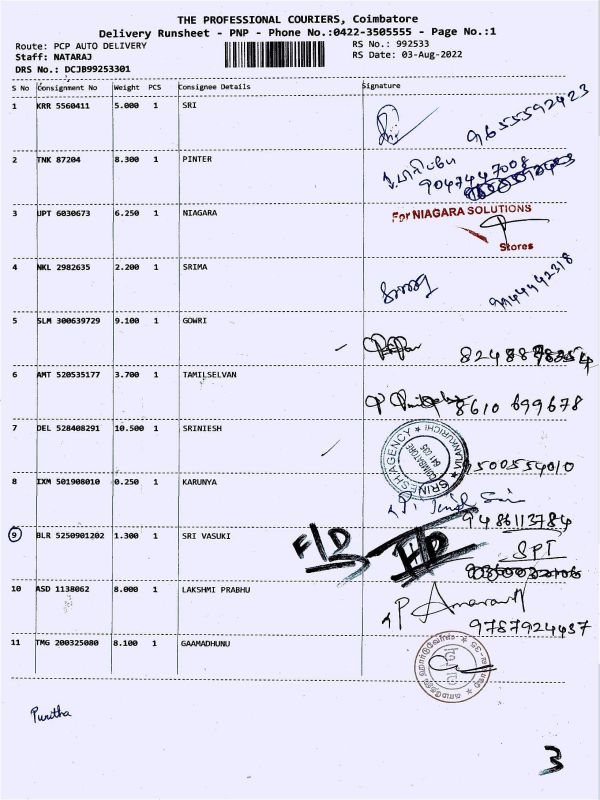 THE PROFESSIONAL COURIERS, Coimbatore
Delivery Runsheet - PNP - Phone No.:0422-3505555 - Page No.:1
Route: PCP AUTO DELIVERY RS No.: 992533
Staff: NATARAJ RS Date: 03-Aug-2022
DRS No.: DCJB99253301
S No Consignment No Weight PCS Consignee Details Signature
1 KRR 5560411 5.000 1 SRI
9655592423
2 TNK 87204 8.300 1 PINTER
9047447008
3 UPT 6030673 6.250 1 NIAGARA For NIAGARA SOLUTIONS
Stores
4 NKL 2982635 2.200 1 SRIMA
5 SLM 300639729 9.100 1 GOWRI
6 AMT 520535177 3.700 1 TAMILSELVAN
8610 699678
7 DEL 528408291 10.500 1 SRINIESH
SRINESH AGENCY COIMBATORE 641 035
9500554010
8 IXM 501908010 0.250 1 KARUNYA
9486113784
9 BLR 5250901202 1.300 1 SRI VASUKI F/D F/D SPT
10 ASD 1138062 8.000 1 LAKSHMI PRABHU
9787924437
11 TMG 200325080 8.100 1 GAAMADHUNU
Puritha
3